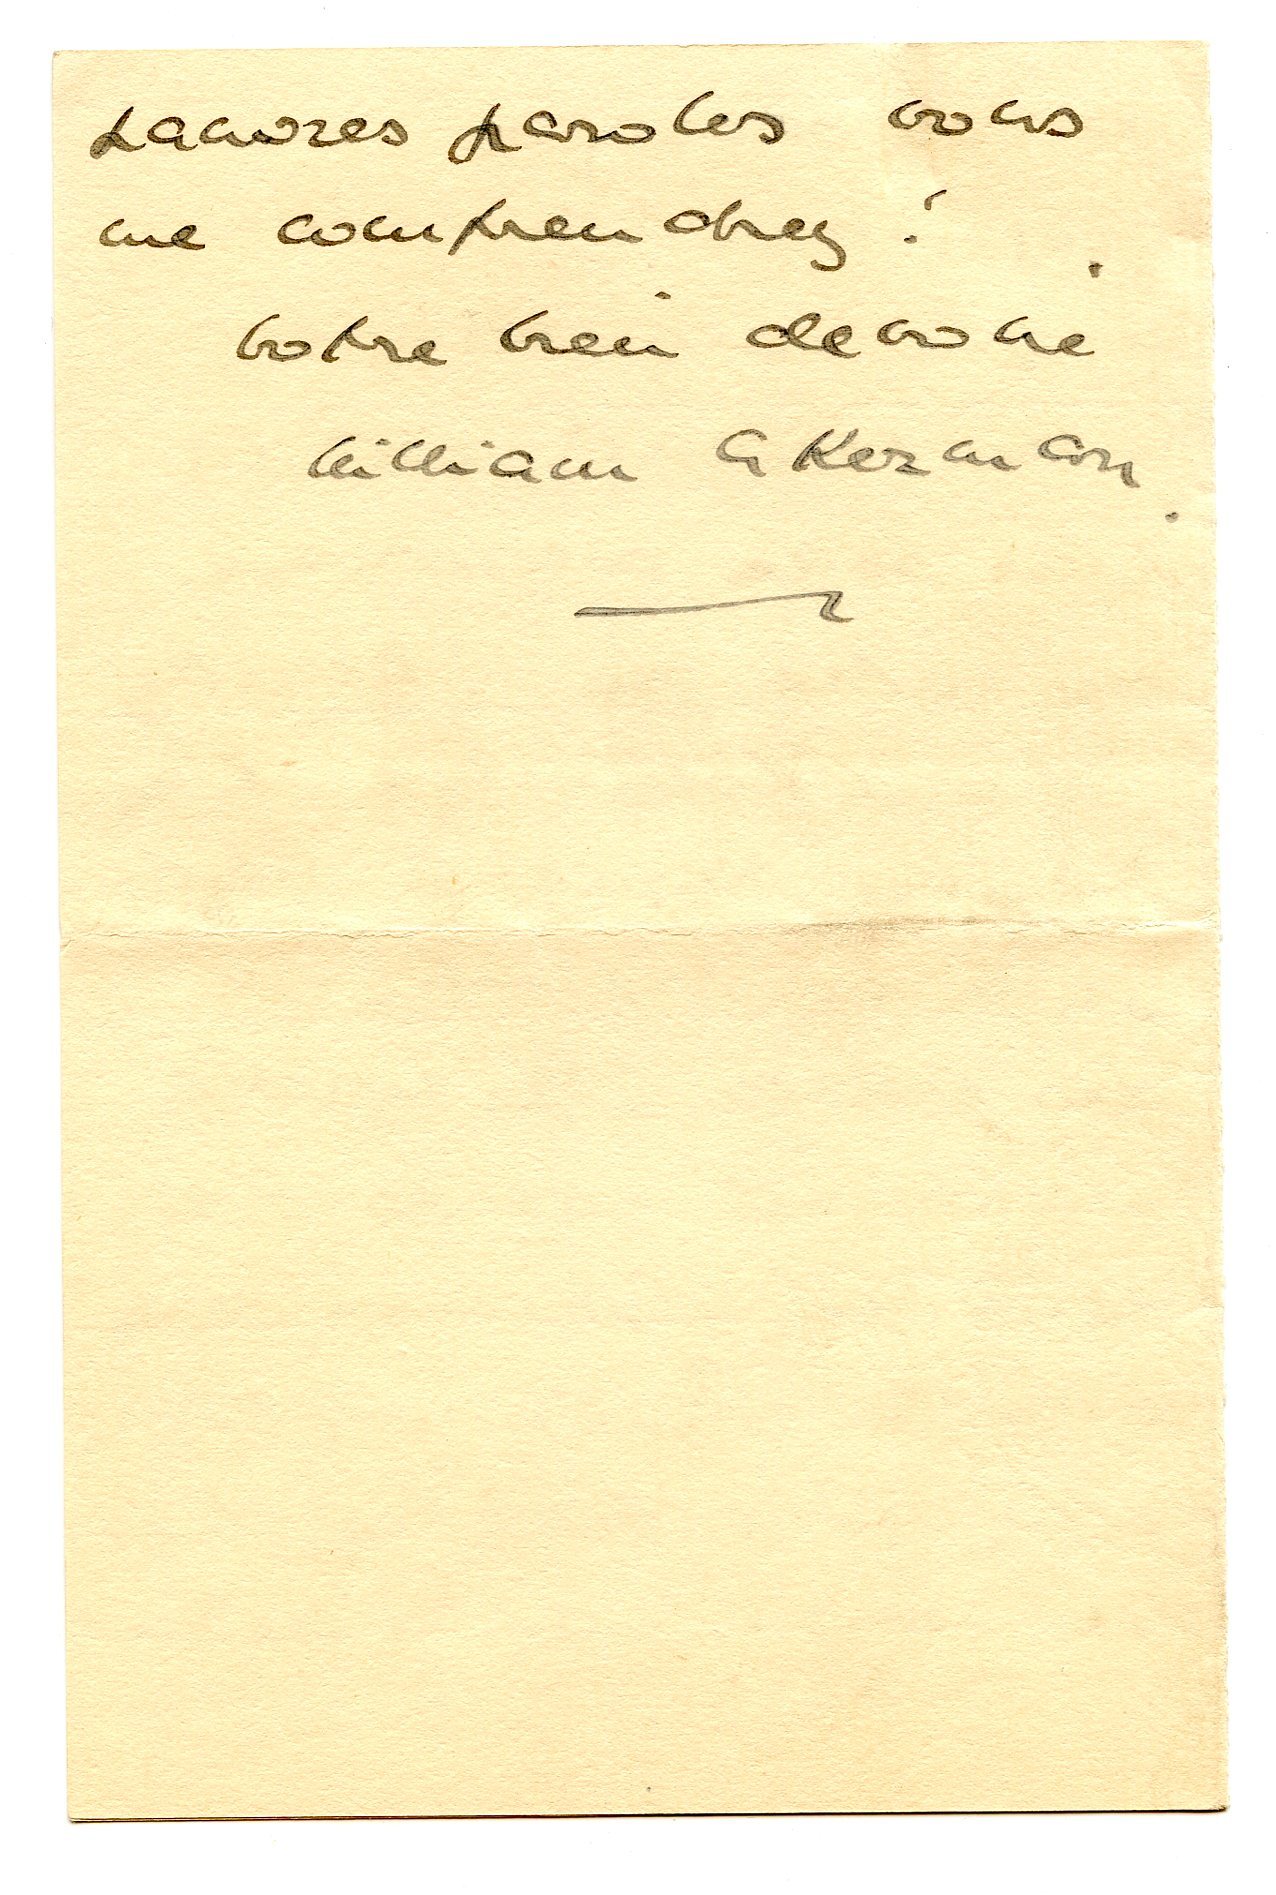 pauvres paroles vous
me comprendrez !
votre bien devoué
William Akerman.